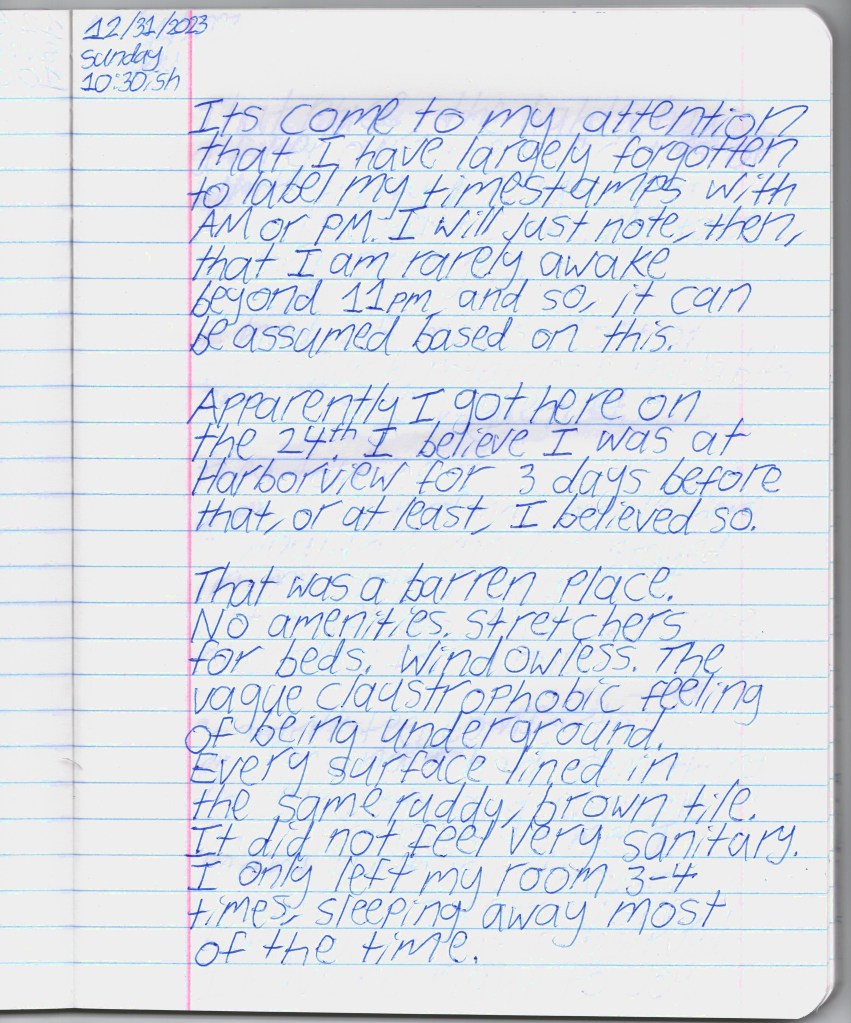 12/31/2023
sunday
10:30ish
Its come to my attention
that I have largely forgotten
to label my timestamps with
AM or PM. I will just note, then,
that I am rarely awake
beyond 11pm, and so, it can
be assumed based on this.
Apparently I got here on
the 24th. I believe I was at
Harborview for 3 days before
that, or at least, I believed so.
That was a barren place.
No amenities. Stretchers
for beds. Windowless. The
vague claustrophobic feeling
of being underground.
Every surface lined in
the same ruddy, brown tile.
It did not feel very sanitary.
I only left my room 3-4
times, sleeping away most
of the time.